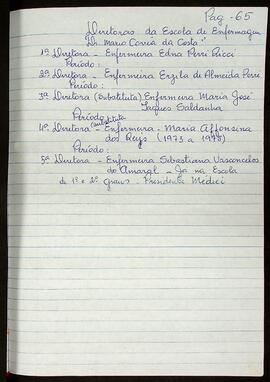 Pag - 65
Diretoras da Escola de Enfermagem
"Dr. Mario Corrêa da Costa"
1ª Diretora - Enfermeira Edna Perri Ricci
Período:
2ª Diretora - Enfermeira Erzila de Almeida Perri
Período:
3ª Diretora (Substituta) Enfermeira Maria José
Jaques Saldanha
Período:
4ª Diretora (substituta) - Enfermeira - Maria Affonsina
dos Reys (1973 a 1978)
Período:
5ª Diretora - Enfermeira Sebastiana Vasconcelos
do Amaral - Já na Escola
de 1º e 2º Graus - Presidente Médici